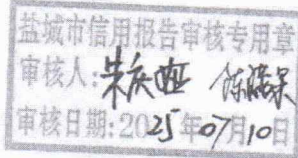 盐城市信用报告审核专用章
审核人:朱庆
审核日期:2025年07月10日